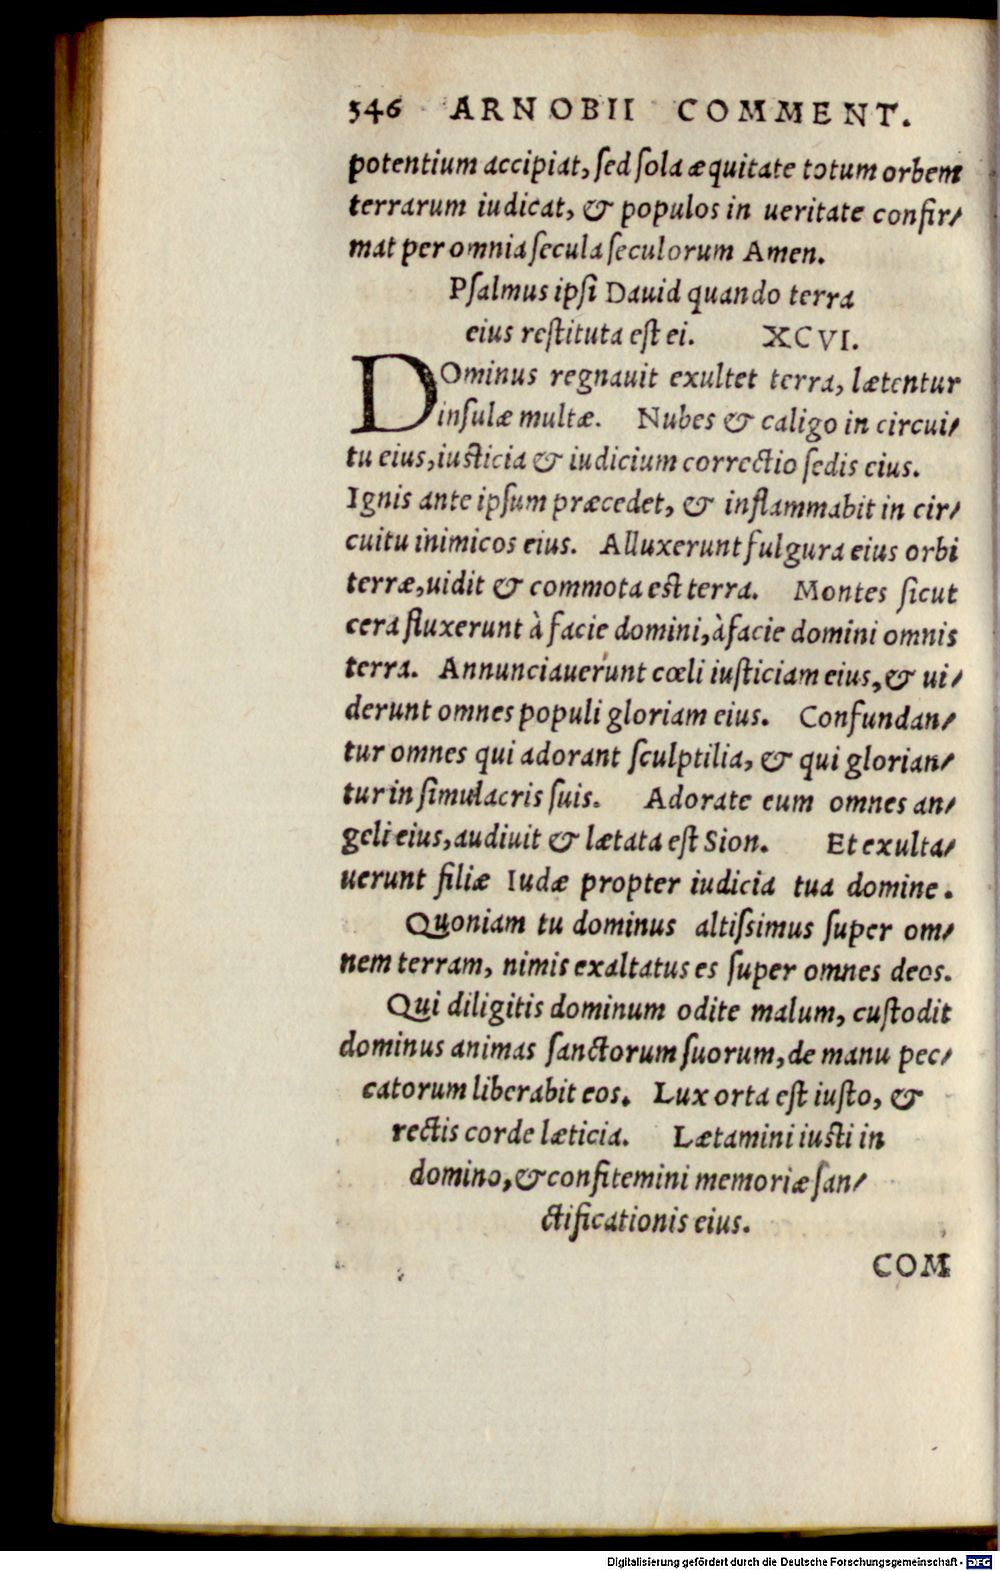 346 ARNOBII COMMENT.
potentium accipiat, ſed ſola æquitate totum orbem
terrarum iudicat, & populos in ueritate confir-
mat per omnia ſecula ſeculorum Amen.
Pſalmus ipſi Dauid quando terra
eius reſtituta eſt ei. XCVI.
DOminus regnauit exultet terra, lætentur
inſulæ multæ. Nubes & caligo in circui-
tu eius, iuſticia & iudicium correctio ſedis eius.
Ignis ante ipſum præcedet, & inflammabit in cir-
cuitu inimicos eius. Alluxerunt fulgura eius orbi
terræ, uidit & commota eſt terra. Montes ſicut
cera fluxerunt à facie domini, à facie domini omnis
terra. Annunciauerunt cœli iuſticiam eius, & ui-
derunt omnes populi gloriam eius. Confundan-
tur omnes qui adorant ſculptilia, & qui glorian-
tur in ſimulacris ſuis. Adorate eum omnes an-
geli eius, audiuit & lætata eſt Sion. Et exulta-
uerunt filiæ Iudæ propter iudicia tua domine.
Quoniam tu dominus altiſsimus ſuper om-
nem terram, nimis exaltatus es ſuper omnes deos.
Qui diligitis dominum odite malum, cuſtodit
dominus animas ſanctorum ſuorum, de manu pec-
catorum liberabit eos. Lux orta eſt iuſto, &
rectis corde læticia. Lætamini iuſti in
domino, & confitemini memoriæ ſan-
ctificationis eius.
COM
Digitalisierung gefördert durch die Deutsche Forschungsgemeinschaft - DFG